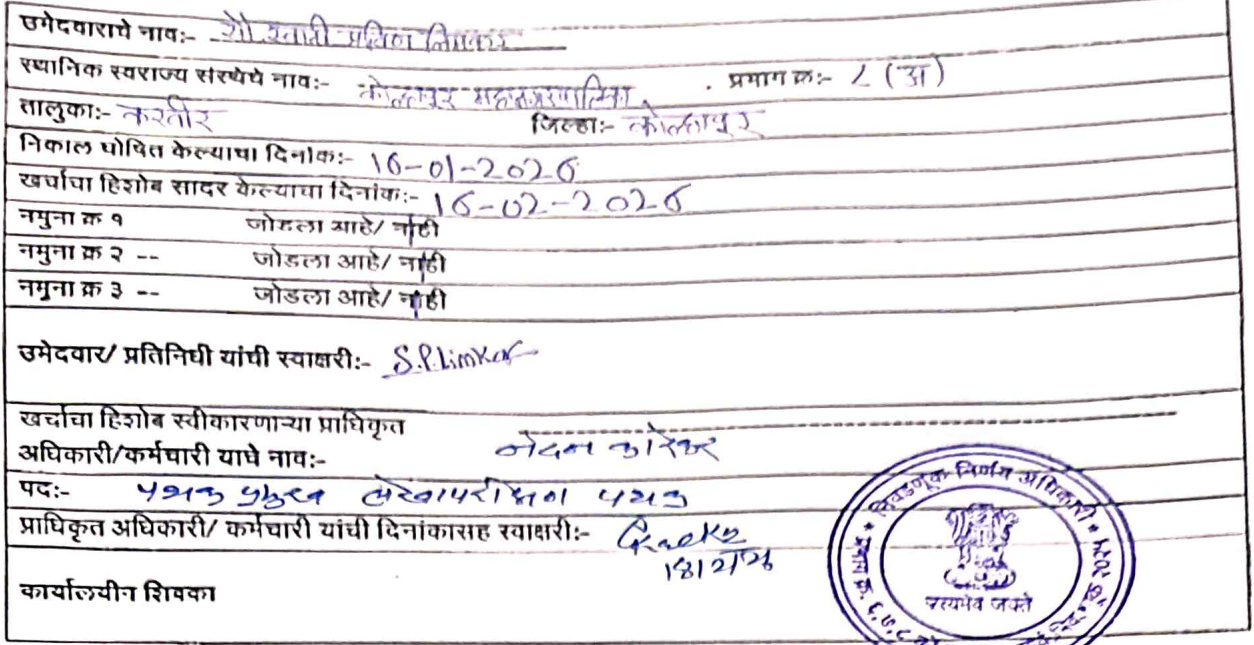 उमेदवाराचे नाव:- सौ. स्वाती प्रविण लिमकर
स्थानिक स्वराज्य संस्थेचे नाव:- कोल्हापूर महानगरपालिका . प्रभाग क्र:- ८ (अ)
तालुका:- करवीर जिल्हा:- कोल्हापूर
निकाल घोषित केल्याचा दिनांक:- 16-01-2026
खर्चाचा हिशोब सादर केल्याचा दिनांक:- 16-02-2026
नमुना क्र १ जोडला आहे/ नाही
नमुना क्र २ -- जोडला आहे/ नाही
नमुना क्र ३ -- जोडला आहे/ नाही
उमेदवार/ प्रतिनिधी यांची स्वाक्षरी:- S.P.Limkar
खर्चाचा हिशोब स्वीकारणाऱ्या प्राधिकृत
अधिकारी/कर्मचारी याचे नाव:-
पद:- पथक प्रमुख लेखापरीक्षण पथक
प्राधिकृत अधिकारी/ कर्मचारी यांची दिनांकासह स्वाक्षरी:-
कार्यालयीन शिक्का
निवडणूक निर्णय अधिकारी
सत्यमेव जयते